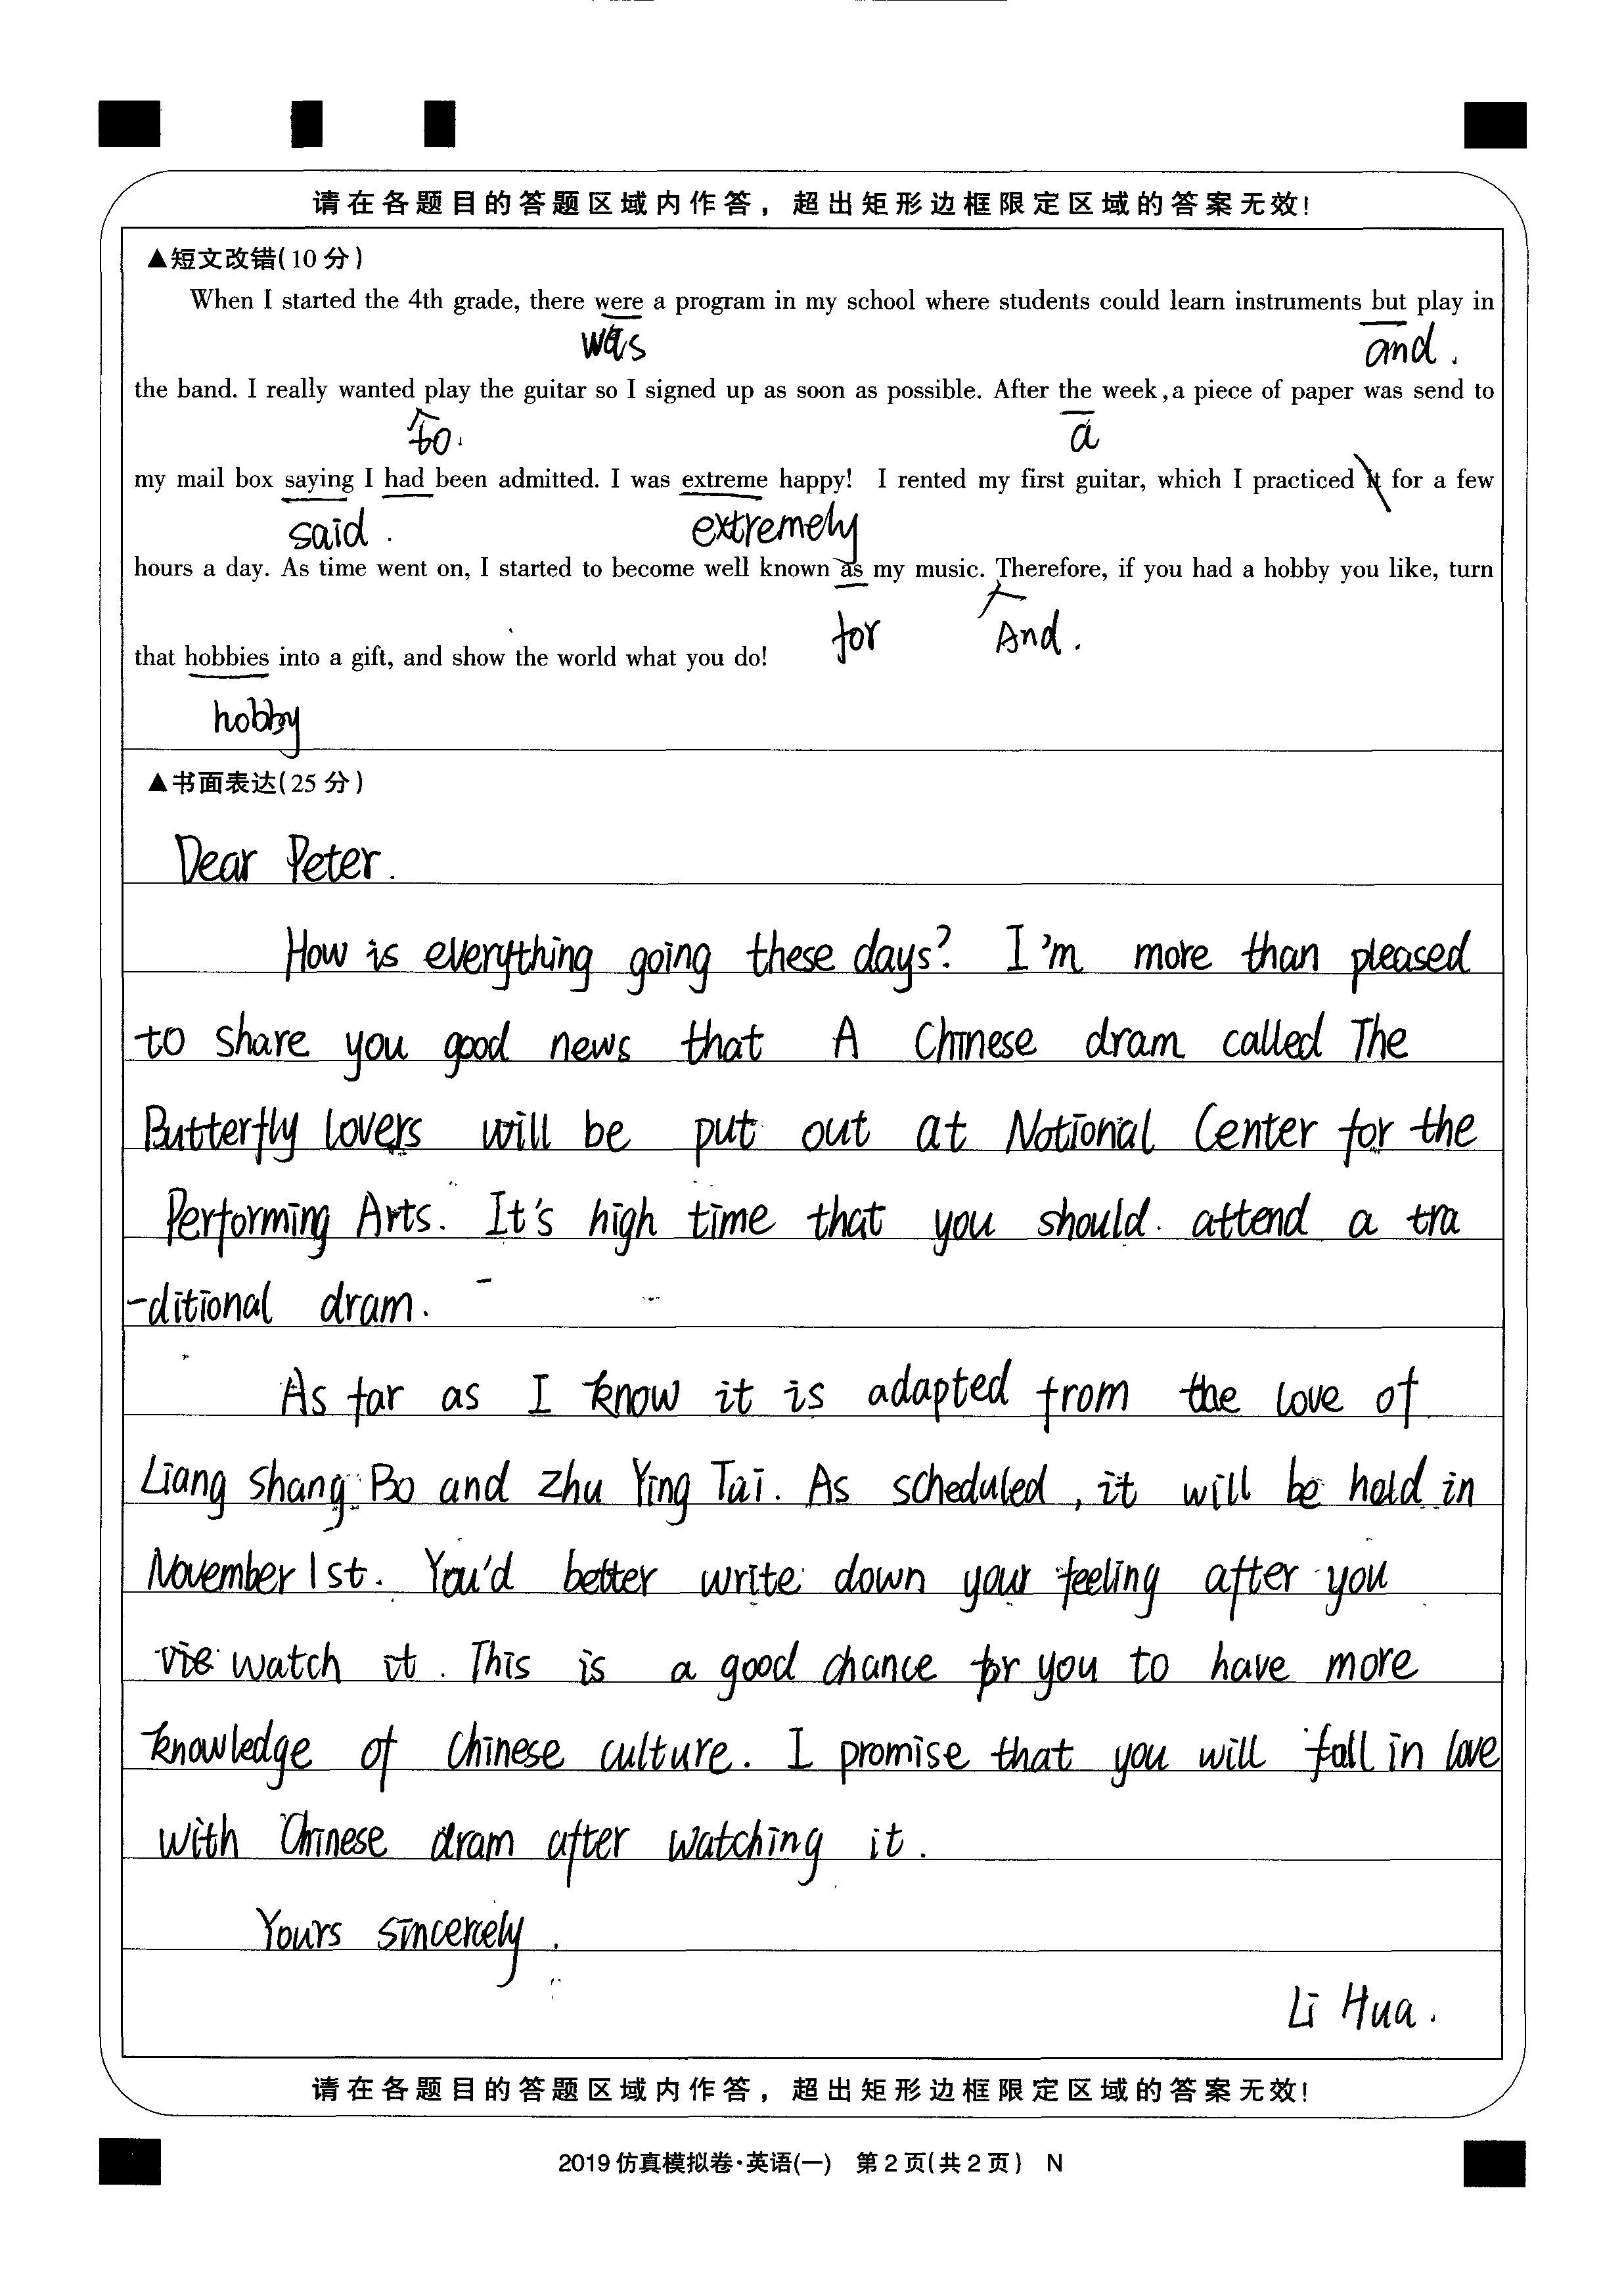 请在各题目的答题区域内作答，超出矩形边框限定区域的答案无效!
▲短文改错(10分)
When I started the 4th grade, there were a program in my school where students could learn instruments but play in
was and.
the band. I really wanted play the guitar so I signed up as soon as possible. After the week, a piece of paper was send to
to. a
my mail box saying I had been admitted. I was extreme happy! I rented my first guitar, which I practiced it for a few
said. extremely
hours a day. As time went on, I started to become well known as my music. Therefore, if you had a hobby you like, turn
for And.
that hobbies into a gift, and show the world what you do!
hobby
▲书面表达(25分)
Dear Peter.
How is everything going these days? I'm more than pleased
to share you good news that A Chinese dram called The
Butterfly lovers will be put out at Notional Center for the
Performing Arts. It's high time that you should attend a tra
-ditional dram.
As far as I know it is adapted from the love of
Liang Shang Bo and Zhu Ying Tai. As scheduled, it will be hold in
November 1st. You'd better write down your feeling after you
vie watch it. This is a good chance for you to have more
knowledge of Chinese culture. I promise that you will fall in love
with Chinese dram after watching it.
Yours sincerely.
Li Hua.
请在各题目的答题区域内作答，超出矩形边框限定区域的答案无效!
2019仿真模拟卷·英语(一) 第2页(共2页) N